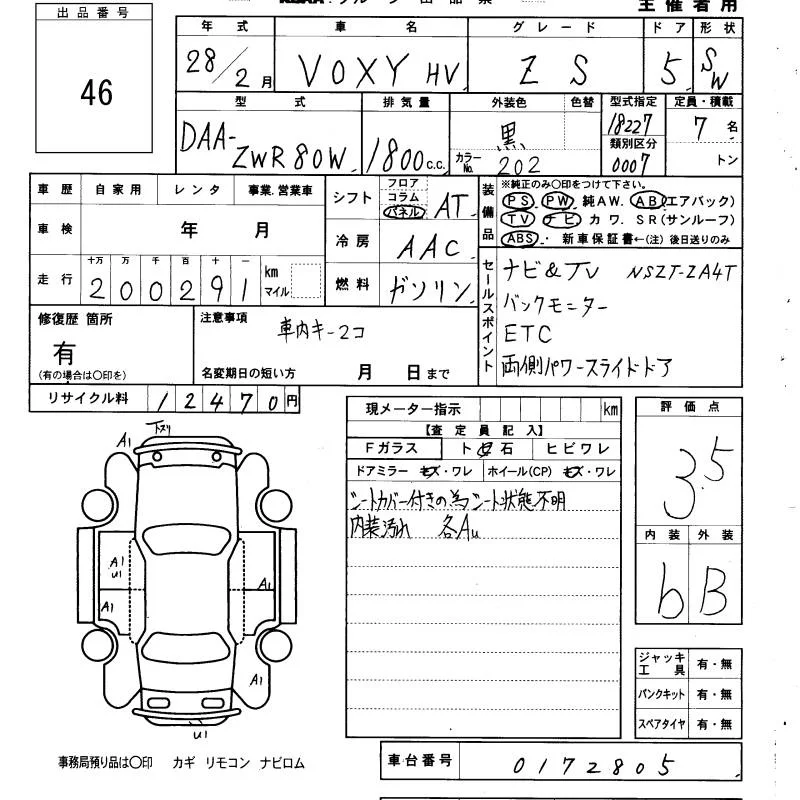 主催者用
出品番号
46
年式 車名 グレード ドア 形状
28/2月 VOXY HV Z S 5 SW
型式 排気量 外装色 色替 型式指定 定員・積載
DAA-ZWR80W 1800c.c. 黒 18227 7名
カラーNo. 202 類別区分 0007 トン
車歴 自家用 レンタ 事業.営業車
車検 年 月
走行 十万 万 千 百 十 一 km マイル
200291
シフト フロア コラム パネル AT
冷房 AAC
燃料 ガソリン
装備品 ※純正のみ〇印をつけて下さい。
PS. PW 純AW. AB(エアバック)
TV ナビ カワ. SR(サンルーフ)
ABS. 新車保証書←(注) 後日送りのみ
セールスポイント
ナビ&TV NSZT-ZA4T
バックモニター
ETC
両側パワースライドドア
修復歴 箇所
有
(有の場合は〇印を)
注意事項
車内キー2コ
名変期日の短い方 月 日まで
リサイクル料 12470円
現メーター指示 km
【査定員記入】
Fガラス ト飛石 ヒビワレ
ドアミラー キズ・ワレ ホイール(CP) キズ・ワレ
シートカバー付きの為シート状態不明
内装汚れ 各Au
評価点
3.5
内装 外装
b B
ジャッキ工具 有・無
パンクキット 有・無
スペアタイヤ 有・無
A1 下スリ
A1
U1
A1
A1
A1
U1
事務局預り品は〇印 カギ リモコン ナビロム
車台番号 0172805